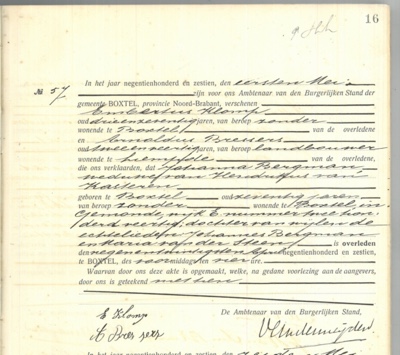 16
In het jaar negentienhonderd en zestien, den eersten Mei
№ 57 zijn voor ons Ambtenaar van den Burgerlijken Stand der
gemeente BOXTEL, provincie Noord-Brabant, verschenen
Klomp
oud drieenzeventig jaren, van beroep zonder
wonende te Boxtel van de overledene
en Arnoldus Bressers
oud jaren, van beroep landbouwer
wonende te Liempde van de overledene,
die ons verklaarden, dat Johanna Bergman
weduwe van Hendrikus van
Kasteren
geboren te Boxtel oud zeventig jaren
van beroep zonder wonende te Boxtel, in
Gemonde, wijk E. nummer een hon-
derd veertig, dochter van wijlen de
echtelieden Johannes Bergman
en Maria van der Steen is overleden
den negenentwintigsten April negentienhonderd en zestien,
te BOXTEL, des voormiddags ten vier ure
Waarvan door ons deze akte is opgemaakt, welke, na gedane voorlezing aan de aangevers,
door ons is geteekend met hen
De Ambtenaar van den Burgerlijken Stand,
E Klomp
A Bressers
In het jaar negentienhonderd en zestien, den